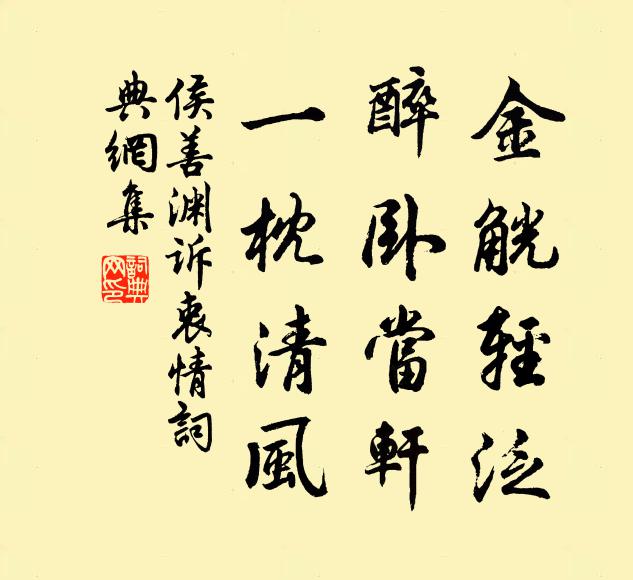 金觥輕泛
醉臥當軒
一枕清風
侯善渊诉衷情詞
典網集
詞典
网印